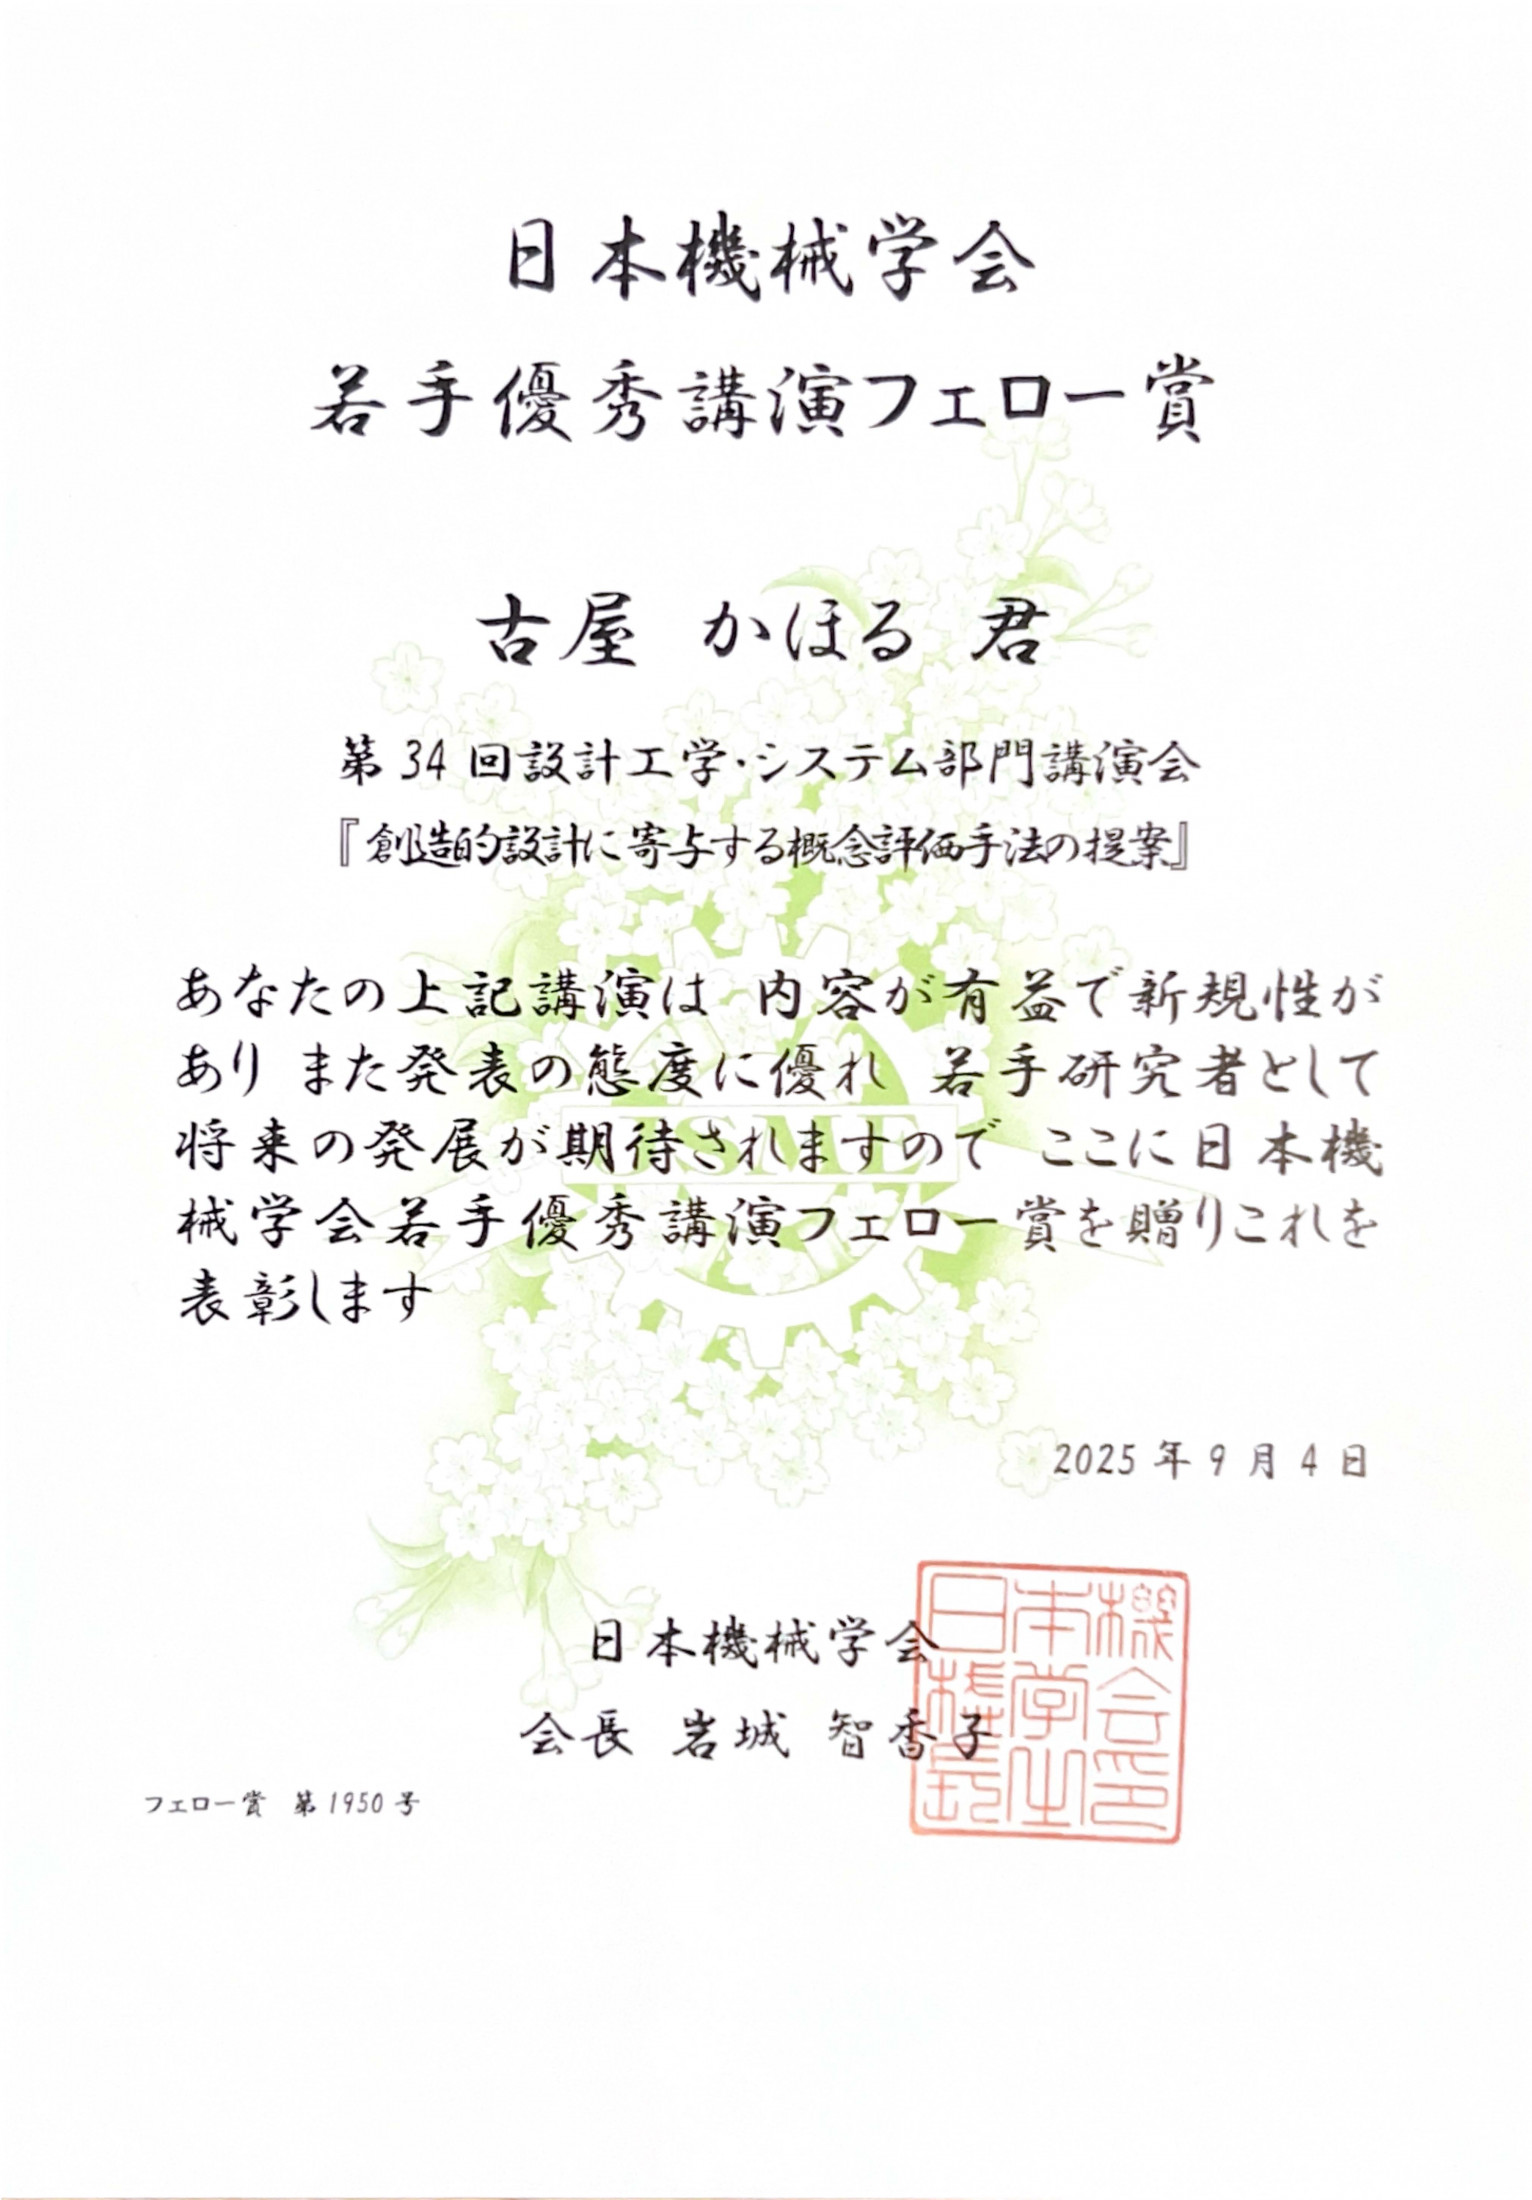 日本機械学会
若手優秀講演フェロー賞
古屋 かほる 君
第 34 回設計工学・システム部門講演会
『創造的設計に寄与する概念評価手法の提案』
あなたの上記講演は 内容が有益で新規性が
あり また発表の態度に優れ 若手研究者として
将来の発展が期待されますので ここに日本機
械学会若手優秀講演フェロー賞を贈りこれを
表彰します
JSME
2025 年 9 月 4 日
日本機械学会
会長 岩城 智香子
日本機
械学会
長之印
フェロー賞 第 1950 号